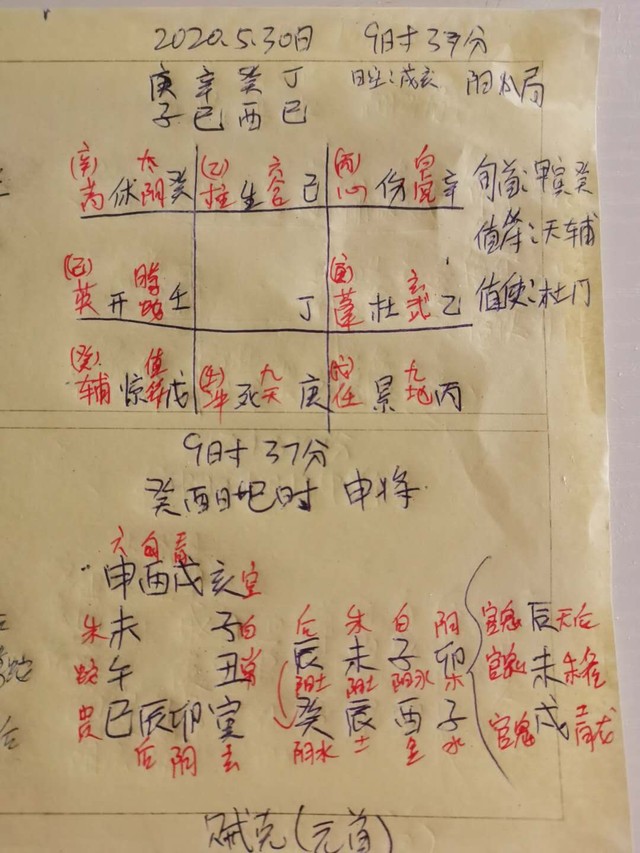 2020.5.30日 9时37分
庚辛癸丁 日空:戌亥 阳八局
子巳酉巳
(辛) 太 (乙) 六 (丙) 白
芮休阴癸 柱生合己 心伤虎辛 旬首:甲寅癸
值符:天辅
(己) 腾 (庚) 玄
英开蛇壬 丁 蓬杜武乙 值使:杜门
(癸) 值 (壬) 九 (戊) 九
辅惊符戊 冲死天庚 任景地丙
9时37分
癸酉日巳时 申将
六勾青
申酉戌亥空
朱未 子白 后朱白阴 官鬼辰天后
蛇午 丑常 辰未子卯 官鬼未朱雀
阴土 阴土 阴水 木
贵巳辰卯寅 癸辰酉子 官鬼戌土青龙
后阴玄 阴水 土 金 水
贼克(元首)